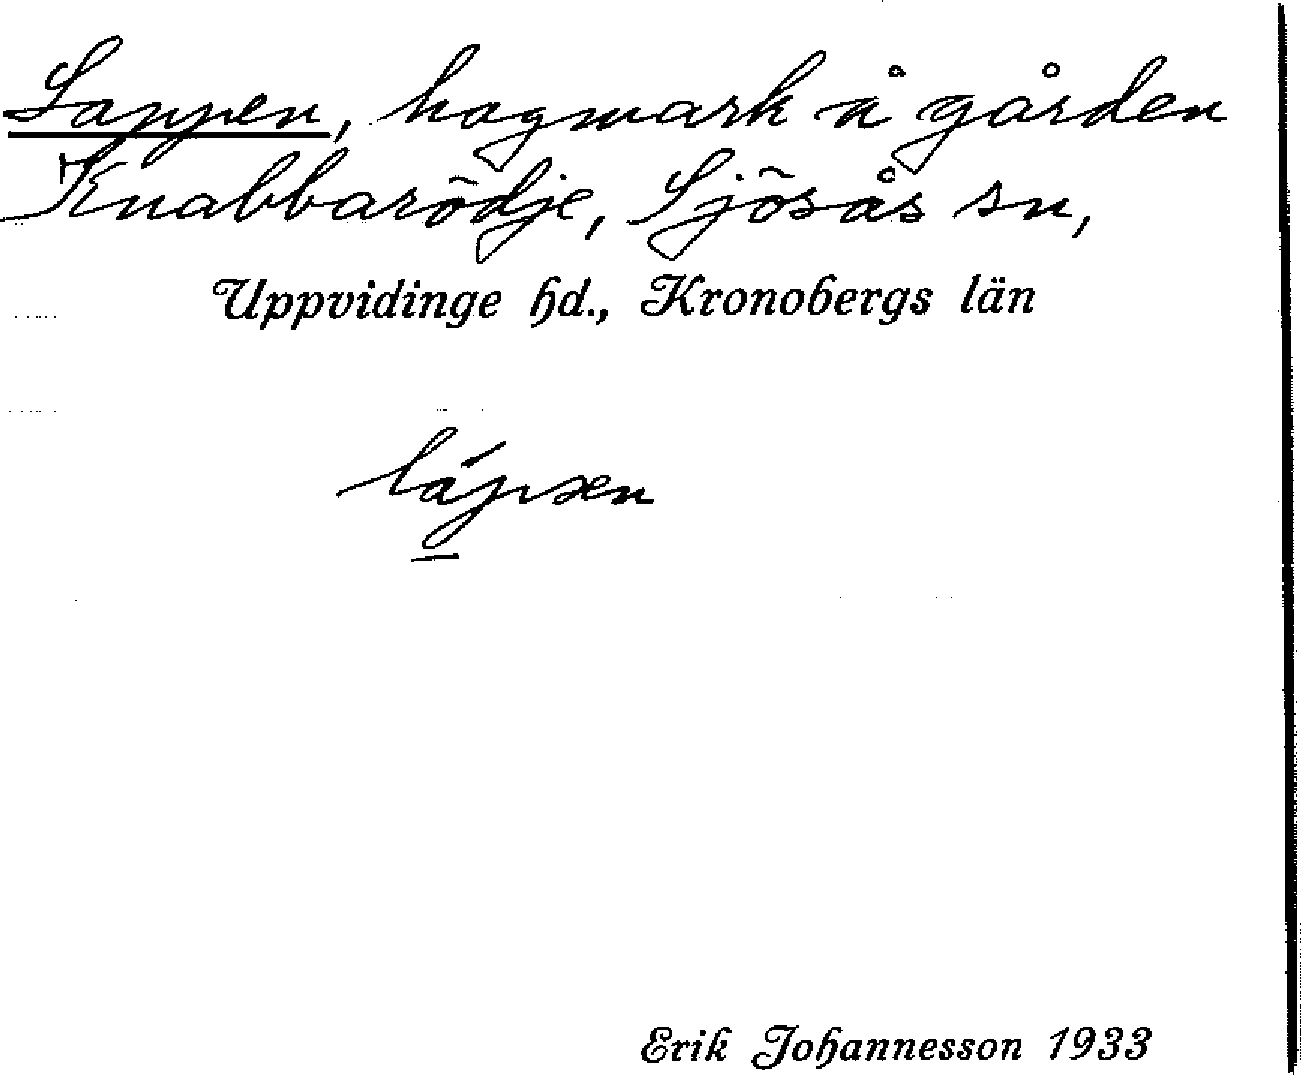 Lappen, hagmark å gården
Knabbarödje, Sjösås sn,
Uppvidinge hd., Kronobergs län
Erik Johannesson 1933